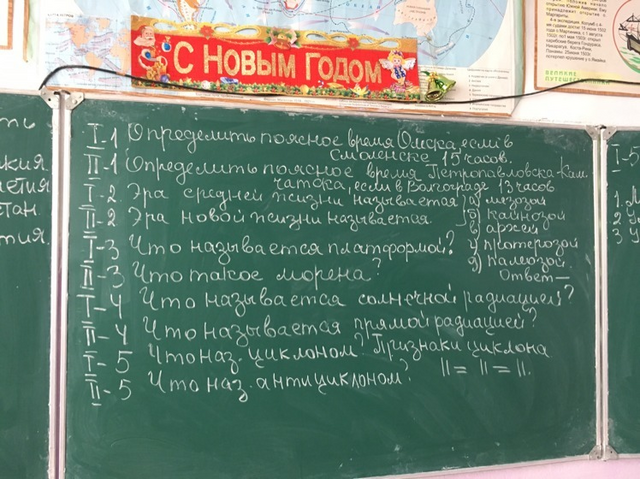 С Новым Годом
ВЕЛИКИЕ
I-1 Определить поясное время Омска, если в
Смоленске 15 часов.
II-1 Определить поясное время Петропавловска-Кам
чатска, если в Волгограде 13 часов
I-2. Эра средней жизни называется а) мезозой
II-2 Эра новой жизни называется. б) кайнозой
в) архей
I-3 Что называется платформой? г) протерозой
д) палеозой.
II-3 Что такое морена? Ответ—
I-4 Что называется солнечной радиацией?
II-4 Что называется прямой радиацией?
I-5 Что наз. циклоном? Признаки циклона
II-5 Что наз. антициклоном? II = II = II.
ть
тан.
I-5
1.
2
3